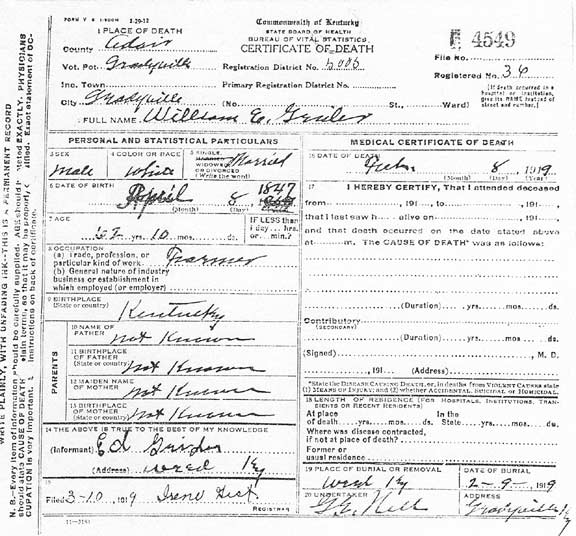 FORM V. S. 1-29-12
1 PLACE OF DEATH
County Adair
Vot. Pct. Gradyville
Inc. Town
City Gradyville (No. St., Ward)
Commonwealth of Kentucky
STATE BOARD OF HEALTH
BUREAU OF VITAL STATISTICS
CERTIFICATE OF DEATH
Registration District No. 5005
Primary Registration District No.
4549
File No.
Registered No. 36
[If death occurred in a hospital or institution, give its NAME instead of street and number.]
2 FULL NAME William E. Grider
PERSONAL AND STATISTICAL PARTICULARS
3 SEX male
4 COLOR OR RACE White
5 SINGLE, MARRIED, WIDOWED OR DIVORCED (Write the word) Married
6 DATE OF BIRTH April 8, 1847
(Month) (Day)
7 AGE yrs. 10 mos. ds.
IF LESS than 1 day ... hrs. or ... min.?
8 OCCUPATION
(a) Trade, profession, or particular kind of work Farmer
(b) General nature of industry business or establishment in which employed (or employer)
9 BIRTHPLACE (State or country) Kentucky
PARENTS
10 NAME OF FATHER not Known
11 BIRTHPLACE OF FATHER (State or country) not Known
12 MAIDEN NAME OF MOTHER not Known
13 BIRTHPLACE OF MOTHER (State or country) not Known
14 THE ABOVE IS TRUE TO THE BEST OF MY KNOWLEDGE
(Informant) Ed Grider
(Address) Weed Ky
15
Filed 3-10, 1919 Irene
REGISTRAR
11-3184
MEDICAL CERTIFICATE OF DEATH
16 DATE OF DEATH Feb. 8 1919
(Month) (Day) (Year)
17 I HEREBY CERTIFY, That I attended deceased
from , 191 , to , 191 ,
that I last saw h alive on , 191 ,
and that death occurred on the date stated above
at m. The CAUSE OF DEATH* was as follows:
(Duration) yrs. mos. ds.
Contributory
(SECONDARY)
(Duration) yrs. mos. ds.
(Signed) , M. D.
, 191 (Address)
*State the DISEASE CAUSING DEATH, or, in deaths from VIOLENT CAUSES state (1) MEANS OF INJURY; and (2) whether ACCIDENTAL, SUICIDAL or HOMICIDAL.
18 LENGTH OF RESIDENCE (FOR HOSPITALS, INSTITUTIONS, TRANSIENTS OR RECENT RESIDENTS)
At place of death yrs. mos. ds. In the State yrs. mos. ds.
Where was disease contracted, if not at place of death?
Former or usual residence
19 PLACE OF BURIAL OR REMOVAL Weed Ky
DATE OF BURIAL 2-9-1919
20 UNDERTAKER
ADDRESS Gradyville Ky
N. B.—Every item of information should be carefully supplied. AGE should be stated EXACTLY. PHYSICIANS should state CAUSE OF DEATH in plain terms, so that it may be properly classified. Exact statement of OCCUPATION is very important. Instructions on back of certificate.
WRITE PLAINLY, WITH UNFADING INK--THIS IS A PERMANENT RECORD